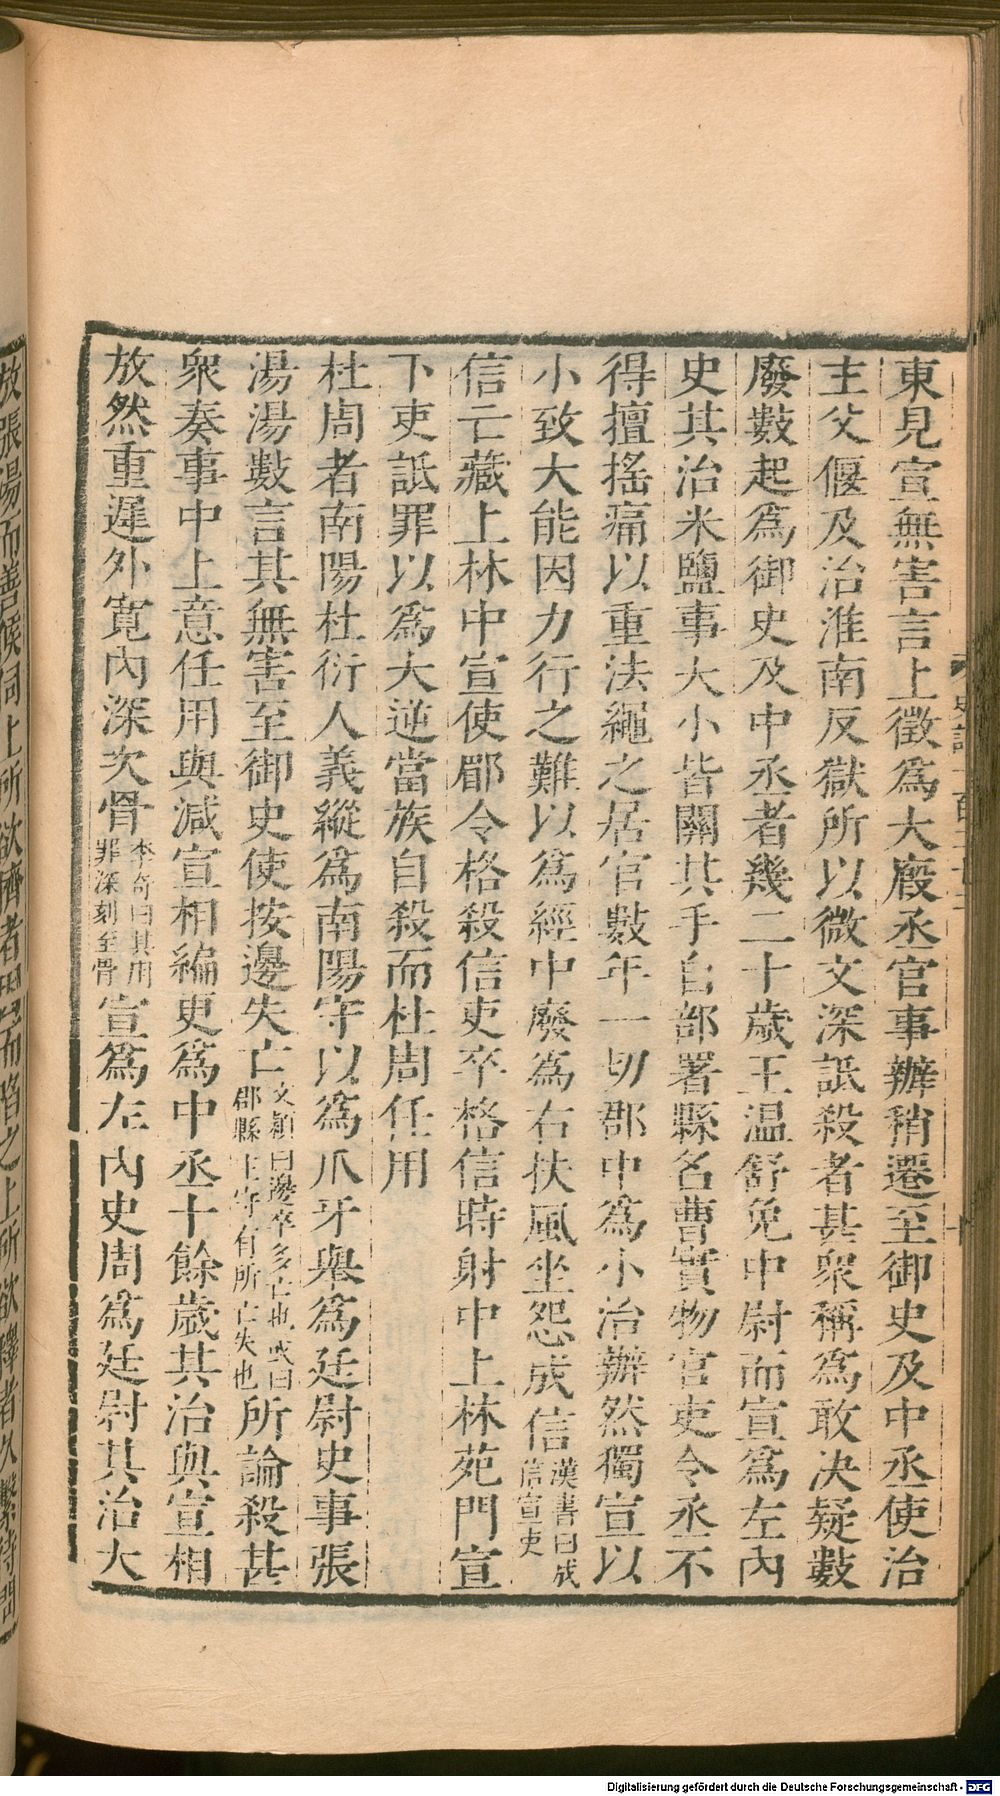 東見宣無害言上徵爲大廄丞官事辦稍遷至御史及中丞使治
主父偃及治淮南反獄所以微文深詆殺者甚衆稱爲敢决疑數
廢數起爲御史及中丞者幾二十歲王温舒免中尉而宣爲左內
史其治米鹽事大小皆關其手自部署縣名曹實物官吏令丞不
得擅搖痛以重法繩之居官數年一切郡中爲小治辦然獨宣以
小致大能因力行之難以爲經中廢爲右扶風坐怨成信漢書曰成信宣吏
信亡藏上林中宣使郿令格殺信吏卒格信時射中上林苑門宣
下吏詆罪以爲大逆當族自殺而杜周任用
杜周者南陽杜衍人義縱爲南陽守以爲爪牙舉爲廷尉史事張
湯湯數言其無害至御史使按邊失亡文頴曰邊卒多亡也或曰郡縣主守有所亡失也所論殺甚
衆奏事中上意任用與減宣相編更爲中丞十餘歲其治與宣相
放然重遲外寛內深次骨李奇曰其用罪深刻至骨宣爲左內史周爲廷尉其治大
放張湯而善候伺上所欲擠者因而陷之上所欲釋者久繫待問
Digitalisierung gefördert durch die Deutsche Forschungsgemeinschaft - DFG